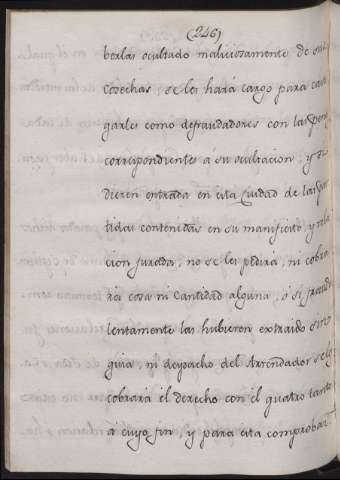 (246)
berlas ocultado maliciosamente de sus
cosechas, se les hará cargo para casti
garles como defraudadores con las penas
correspondiente á su ocultacion, y si
dieren entrada en esta Ciudad de las par
tidas contenidas en su manifiesto, y rela
cion jurada, no se les pedirá, ni cobra
rá cosa ni Cantidad alguna, ó si fraudu
lentamente las hubieren extraido sin
guia, ni despacho del Arrendador se les
cobrará el derecho con el quatro tanto
á cuyo fin, y para esta comprobaz.